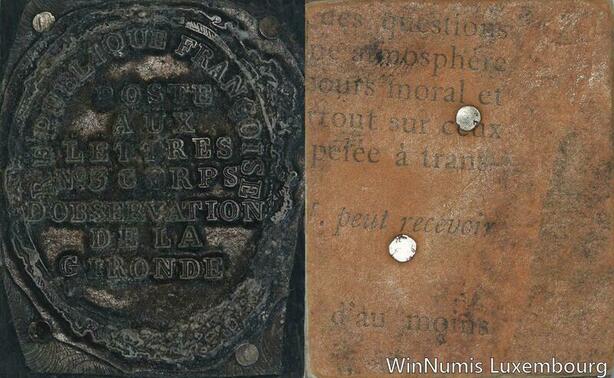 RÉPUBLIQUE FRANÇOISE
POSTE
AUX
LETTRES
No. 5 CORPS
D'OBSERVATION
DE LA
GIRONDE
des questions
atmosphère
moral et
sur ceux
à trans-
peut recevoir
d'au moins
WinNumis Luxembourg